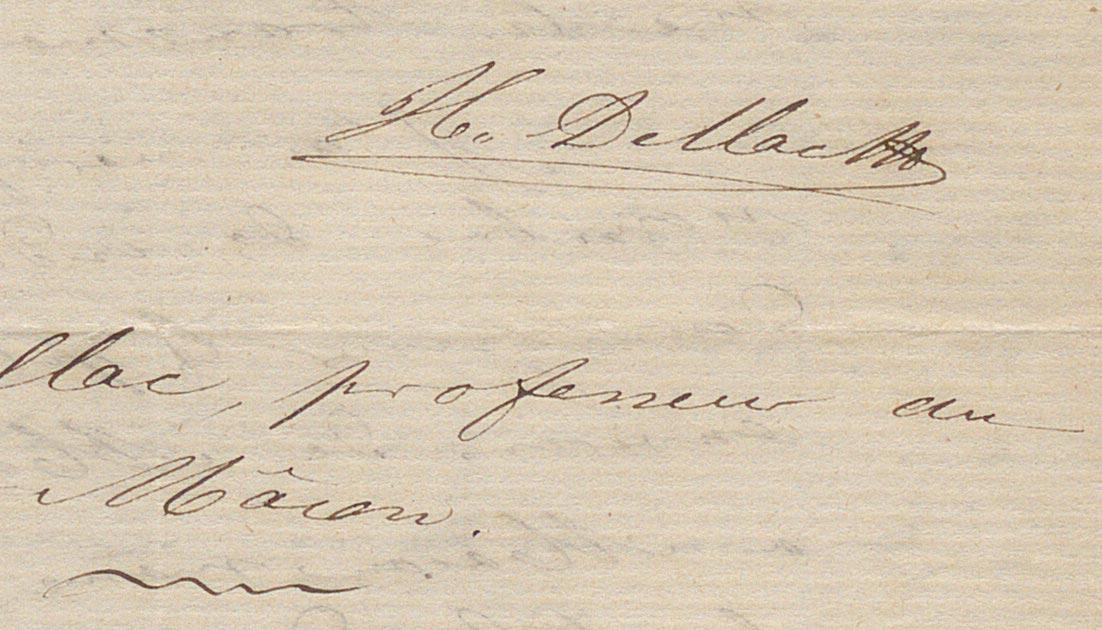 H. Dellac
llac, professeur au
Mâcon.